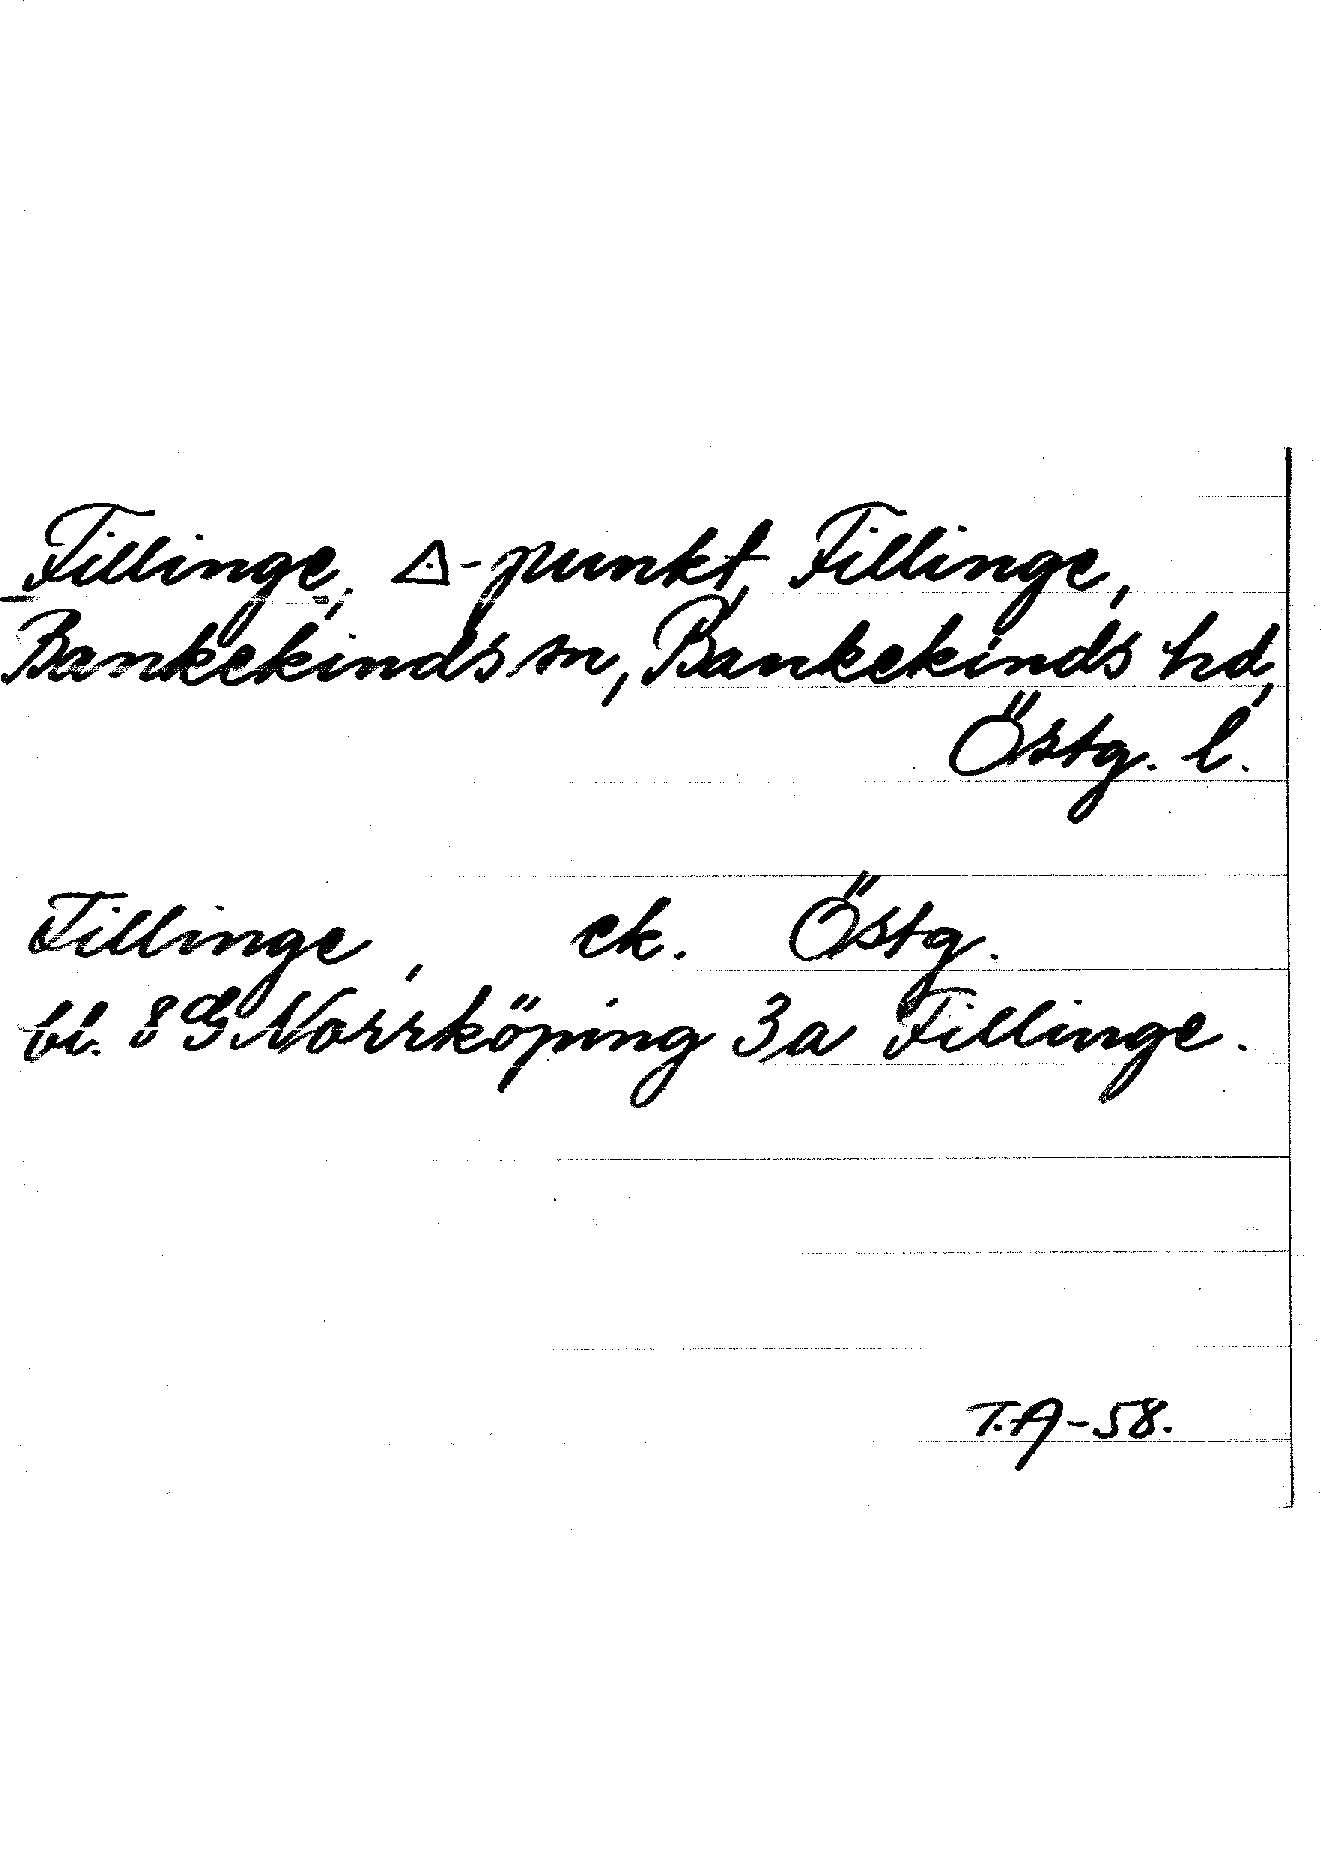 Fillinge, △-punkt, Fillinge,
Bankekinds sn, Bankekinds hd,
Östg. l.
Fillinge, ek. Östg.
bl. 8G Norrköping 3a Fillinge.
T.A-58.